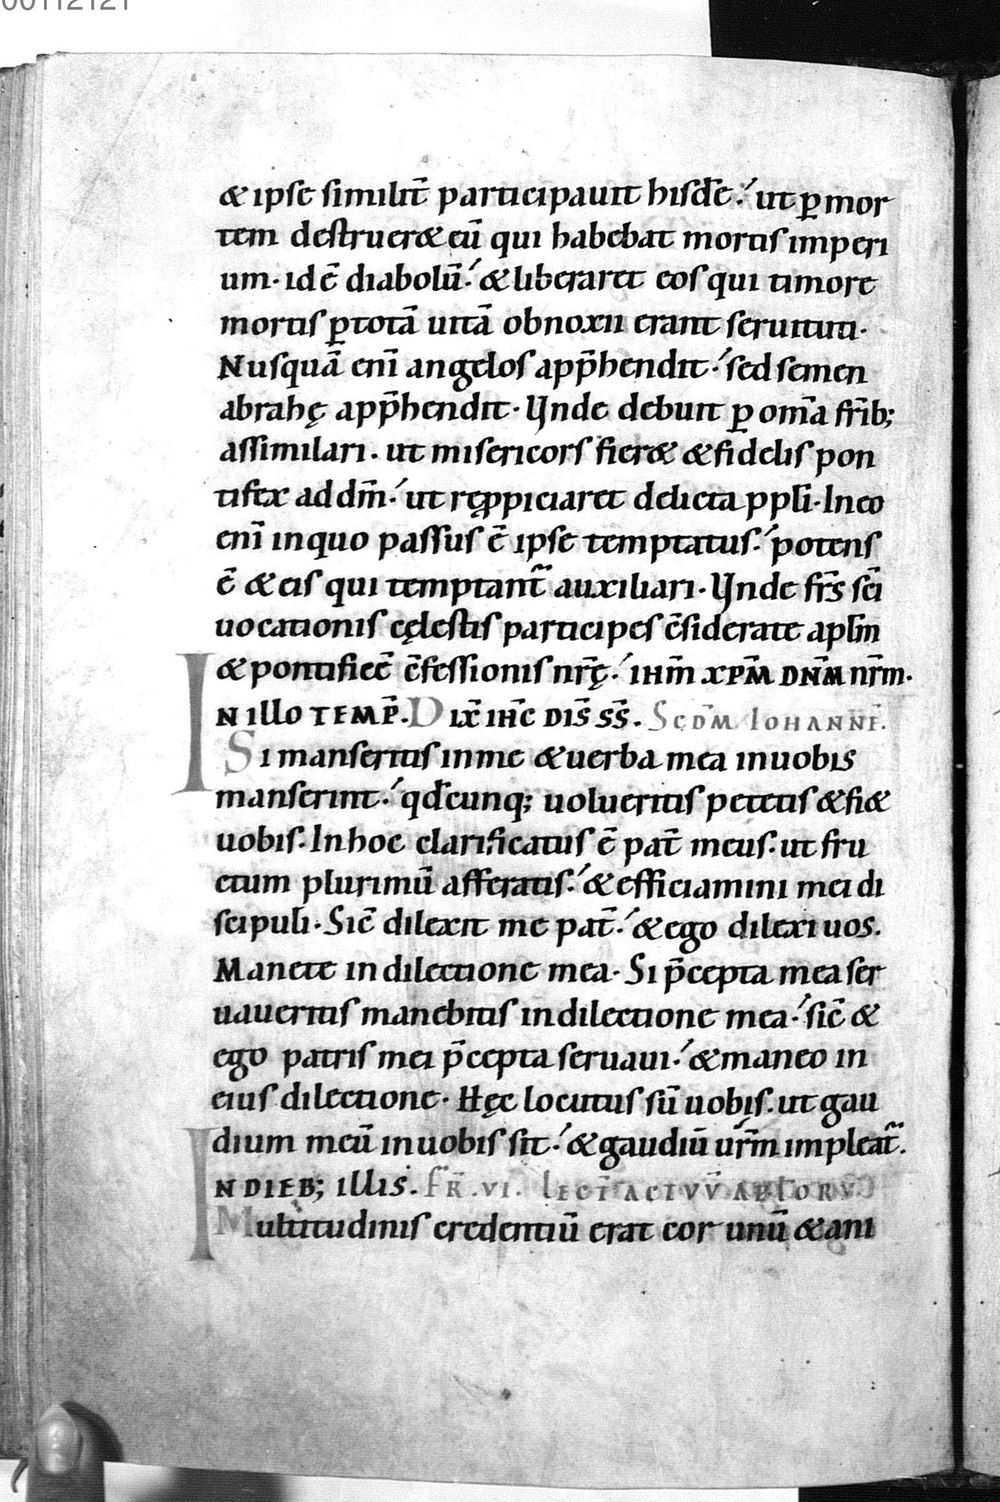 00112121
& ipse similit̄ participauit hisdē. ut ꝑ mor
tem destruer& eū qui habebat mortis imperi
um. id ē diabolū. & liberaret eos qui timore
mortis ꝑ totā uitā obnoxii erant seruituti.
Nusquā enī angelos app̄hendit. sed semen
abrahę app̄hendit. Unde debuit ꝑ om̄a fr̄ib;
assimilari. ut misericors fier& & fidelis pon
tifex ad dm̄. ut ręppiciaret delicta ppl̄i. In eo
enī in quo passus ē ipse temptatus. potens
ē & eis qui temptant̄ auxiliari. Unde fr̄s sc̄i
uocationis cęlestis participes c̄siderate apl̄m
& pontificē c̄fessionis nr̄ę. ihm̄ xpm̄ dnm̄ nr̄m.
In illo temp̄. Dix̄ ih̄c dis̄ ss̄. Scdm̄ Iohanne.
Si manseritis in me & uerba mea in uobis
manserint. qd̄cunq; uolueritis petetis & fi&
uobis. In hoc clarificatus ē pat̄ meus. ut fru
ctum plurimū afferatis. & efficiamini mei di
scipuli. Sic̄ dilexit me pat̄. & ego dilexi uos.
Manete in dilectione mea. Si p̄cepta mea ser
uaueritis manebitis in dilectione mea. sic̄ &
ego patris mei p̄cepta seruaui. & maneo in
eius dilectione. Hęc locutus sū uobis. ut gau
dium meū in uobis sit. & gaudiū ur̄m impleat̄.
In dieb; illis. Fr̄. vi. Lect̄ actuū
Multitudinis credentiū erat cor unū & ani